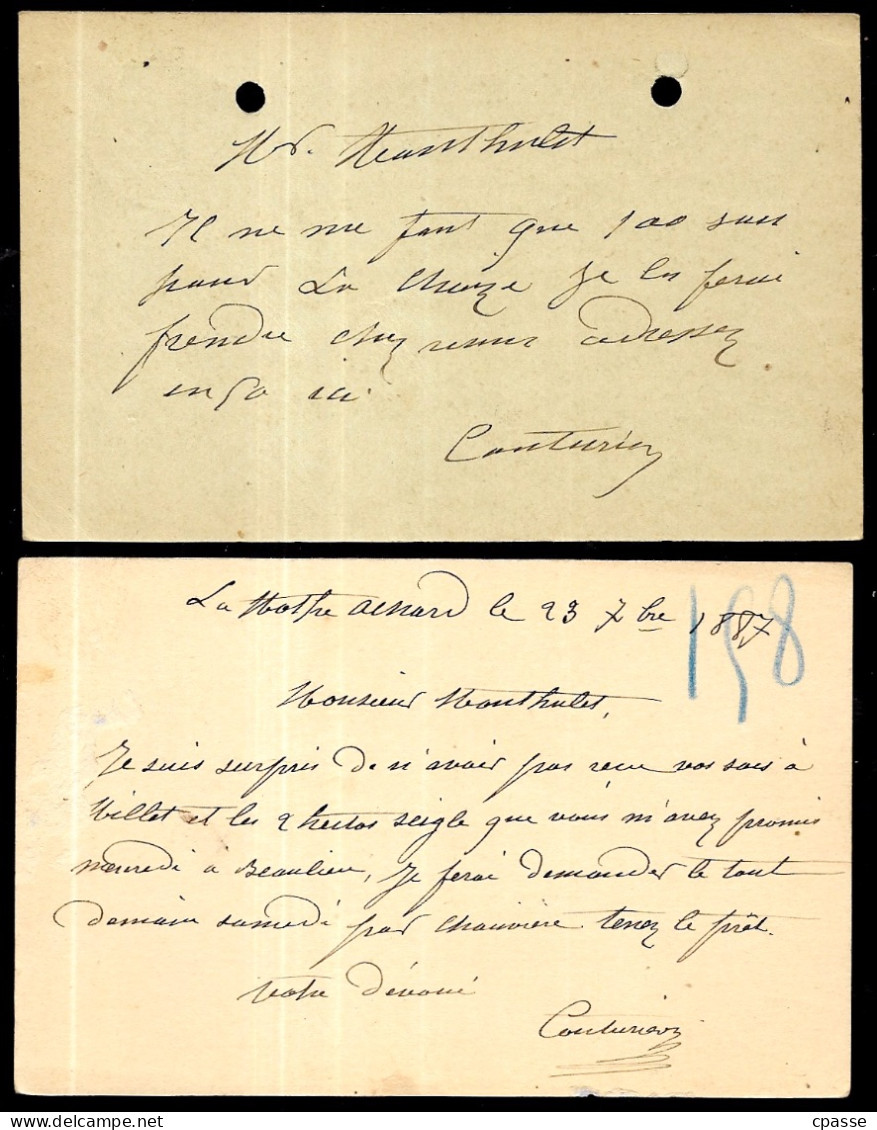 Mr. Monthulet
Il ne me faut que 100 sacs
pour La Chaize je les ferai
prendre chez vous adressez
en 50 ici
Couturier
La Mothe Achard le 23 7bre 1887
198
Monsieur Monthulet,
Je suis surpris de n'avoir pas reçu vos sacs à
Millet et les 2 hectos seigle que vous m'avez promis
mercredi a Beaulieu, Je ferai demander le tout
demain samedi par Chauvière tenez le prêt.
Votre dévoué
Couturier
cpasse